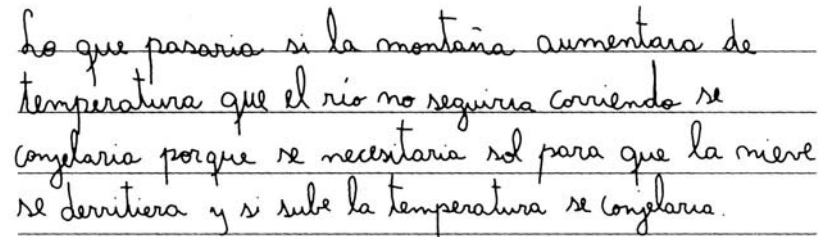 Lo que pasaria si la montaña aumentara de
temperatura que el río no seguiria corriendo se
conjelaria porque se necesitaria sol para que la nieve
se derritiera y si sube la temperatura se conjelaria.